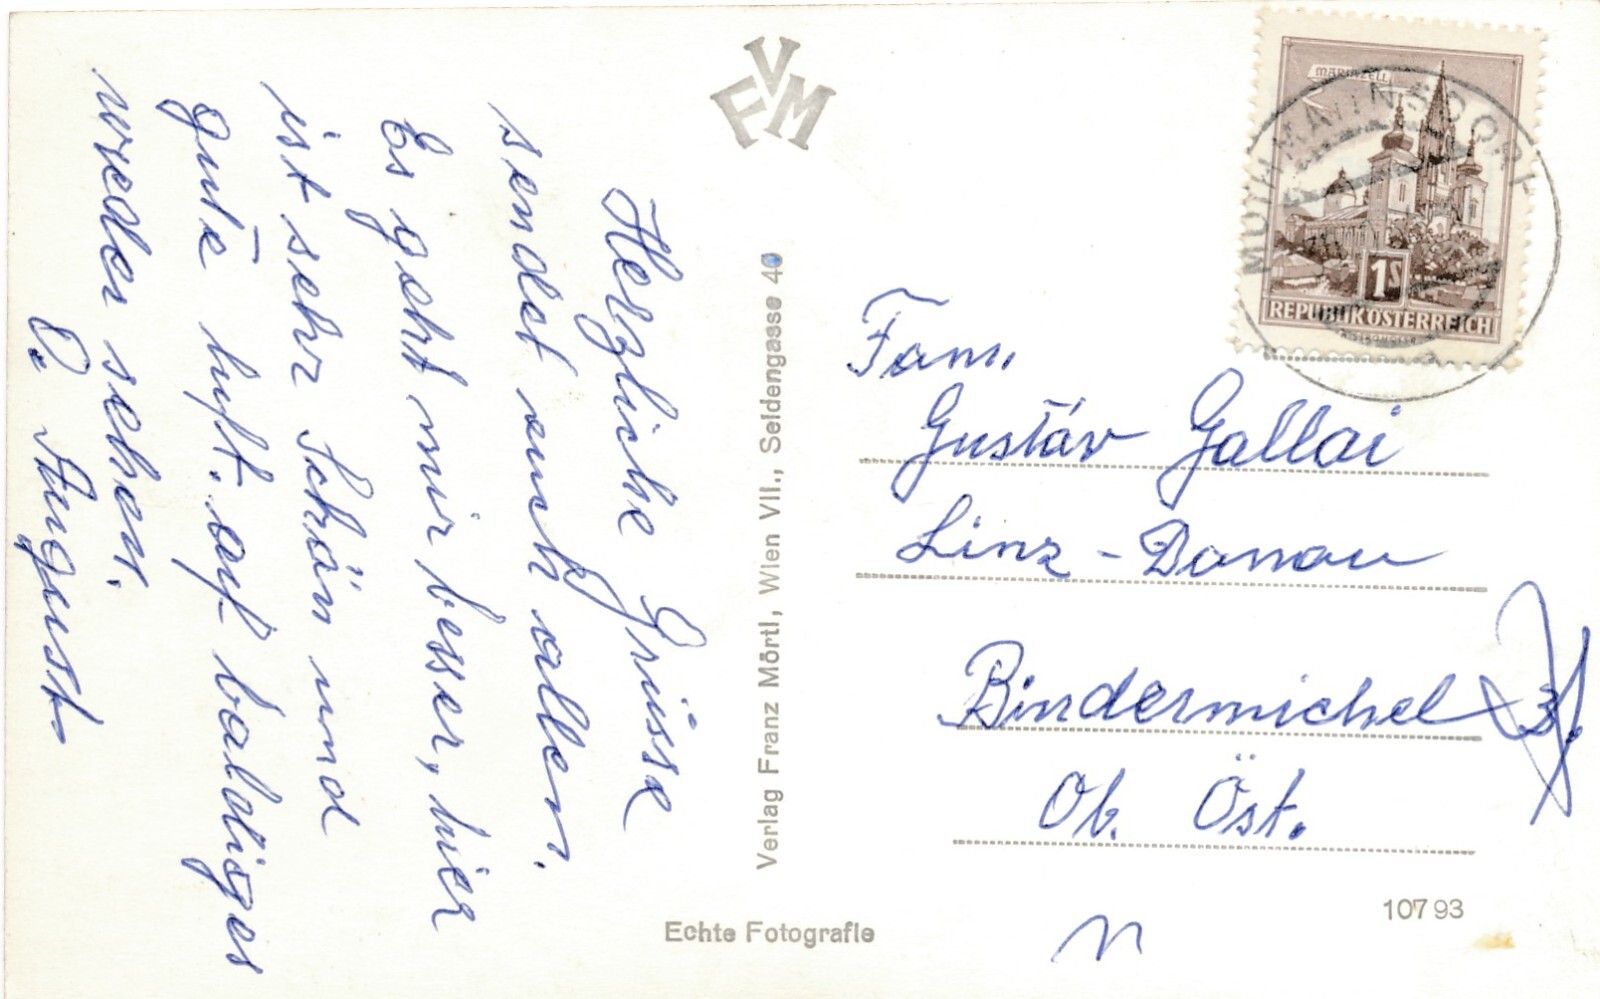 Herzliche Grüsse
sendet euch allen.
Es geht mir besser, hier
ist sehr schön und
gute luft. auf baldiges
wieder sehen.
O. August
FVM
Verlag Franz Mörtl, Wien VII., Seidengasse 40
Echte Fotografie
MARIAZELL
1S
REPUBLIK ÖSTERREICH
Fam.
Gustáv Gallai
Linz - Donau
Bindermichel
Ob. Öst.
10793